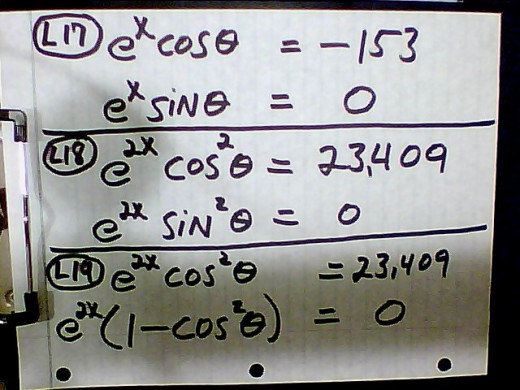 L17 e^x cosθ = -153
e^x sinθ = 0
L18 e^2x cos^2θ = 23,409
e^2x sin^2θ = 0
L19 e^2x cos^2θ = 23,409
e^2x(1-cos^2θ) = 0